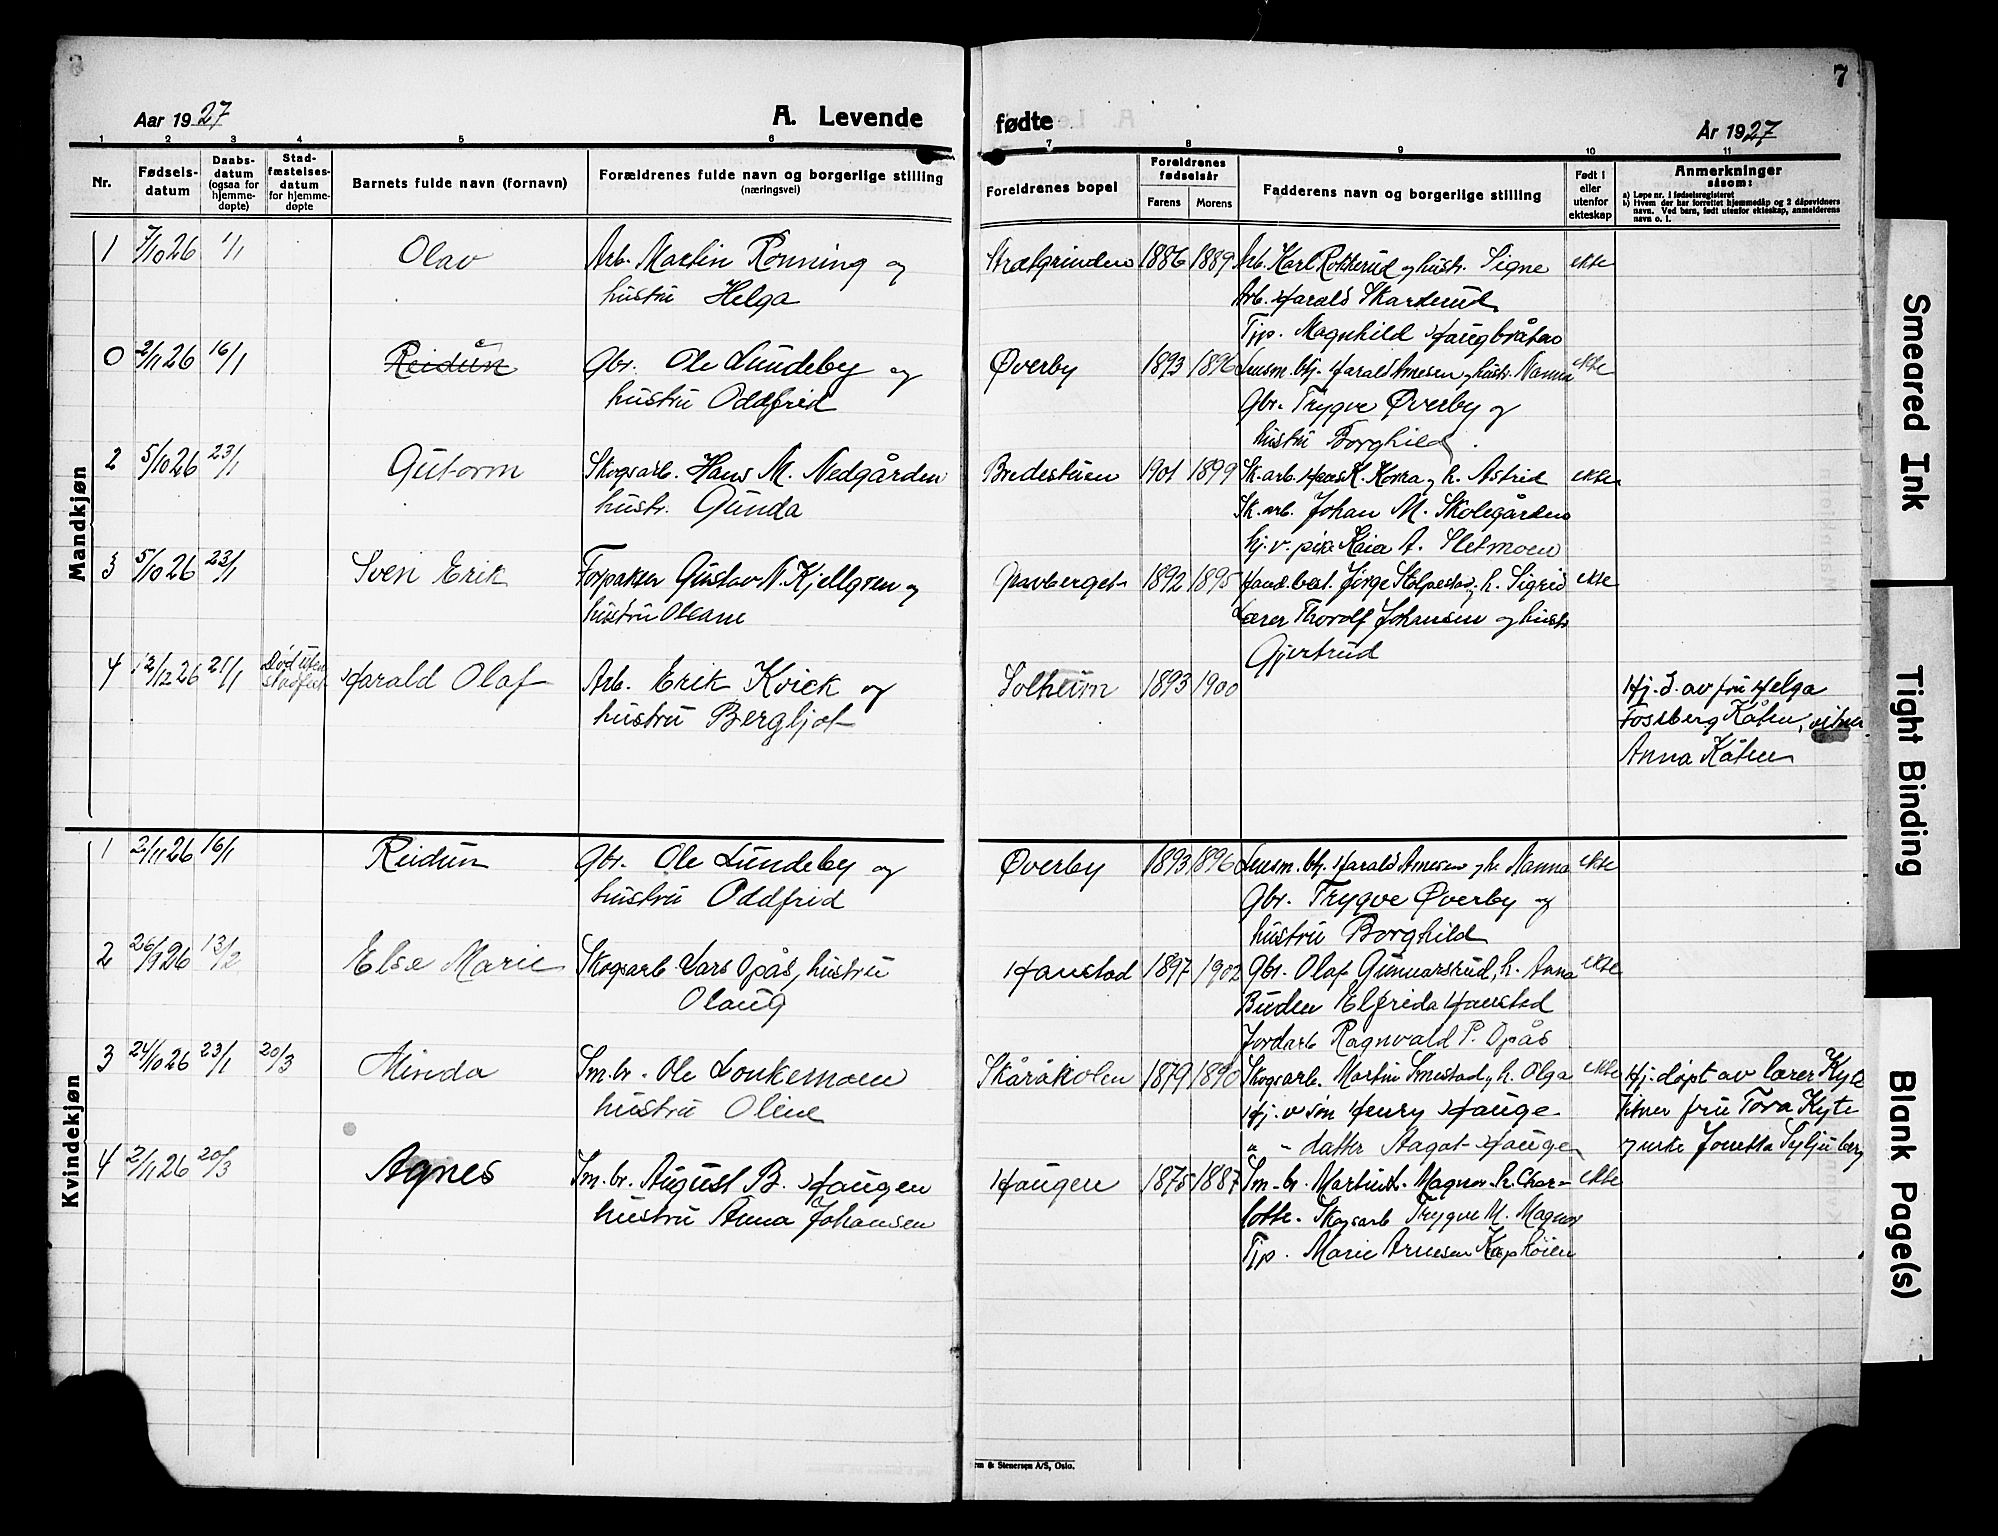 7
Aar 1927
A. Levende
fødte
År 1927
1 2 3 4 5 6 7 8 9 10 11
Nr.
Fødsels-
datum
Daabs-
datum
(ogsaa for
hjemme-
døpte)
Stad-
fæstelses-
datum
for hjemme-
døpte
Barnets fulde navn (fornavn)
Forældrenes fulde navn og borgerlige stilling
(næringsvei)
Foreldrenes bopel
Foreldrenes
fødselsår
Farens Morens
Fadderens navn og borgerlige stilling
Født i
eller
utenfor
ekteskap
Anmerkninger
såsom:
a) Løpe nr. i fødselsregisteret
b) Hvem der har forrettet hjemmedåp og 2 dåpsvidners
navn. Ved barn, født utenfor ekteskap, anmelderens
navn o. l.
Mandkjøn
1 7/10 26 1/1 Olav Arb. Martin Rønning og 1886 1889 Arb. Karl Rokkerud og hustr. Signe ekte
hustru Helga Arb. Harald Skarderud
Tjp. Magnhild Haugbråten
0 2/11 26 16/1 Reidun Gbr. Ole Lundeby og Øverby 1893 1896 Lensm. btj. Harald Arnesen og hustr. Nanna ekte
hustru Oddfrid Gbr. Trygve Øverby og
hustru Borghild.
2 5/10 26 23/1 Gutorm Skogsarb. Hans M. Nedgården Bredestuen 1901 1899 Sk.arb. Hans K. og h. Astrid ekte
hustr. Gunda Sk. arb. Johan M. Skolegården
hj. v. pike Kaia A. Sletmoen
3 5/10 26 23/1 Sven Erik Forpakter Gustav N. Kjellgren og Gravberget 1892 1895 Handl.best. Jørge Stolpestad og h. Sigrid ekte
hustru Oleane Lærer Thorolf Johansen og hustr.
Gjertrud
4 12/12 26 21/1 Død uten stadfest. Harald Olaf Arb. Erik Kvick og Solheim 1893 1900 Hj. d. av fru Helga
hustru Bergljot Fossberg Kåten, vitner
Anna Kåten
Kvindekjøn
1 2/11 26 16/1 Reidun Gbr. Ole Lundeby og Øverby 1893 1896 Lensm. btj. Harald Arnesen og h. Nanna ekte
hustru Oddfrid Gbr. Trygve Øverby og
hustru Borghild
2 26/9 26 13/2 Else Marie Skogsarb. Lars Opås, hustru Hanstad 1897 1902 Gbr. Olaf Gunnarsrud, h. Anna ekte
Olaug Elfrida Hanstad
Jordarb. Ragnvald P. Opås
3 24/10 26 23/1 20/3 Minda Sm.br. Ole Lonkemoen Skåråholen 1879 1890 Skogsarb. Martin Smestad og h. Olga ekte Hj. døpt av lærer Kyte
hustru Oline Hj. v søn Henry Hauge Vitner fru Tora Kyte
" - datter Aagot Haugen
4 2/11 26 20/3 Agnes Sm.br. August B. Haugen Haugen 1875 1887 Sm.br. Martin L. Magnor h. Char- ekte
hustru Anna Johansen lotte. Skogsarb Trygve M. Magnor
Tjp. Marie Arnesen
& Stenersen A/S, Oslo.
Smeared Ink
Tight Binding
Blank Page(s)